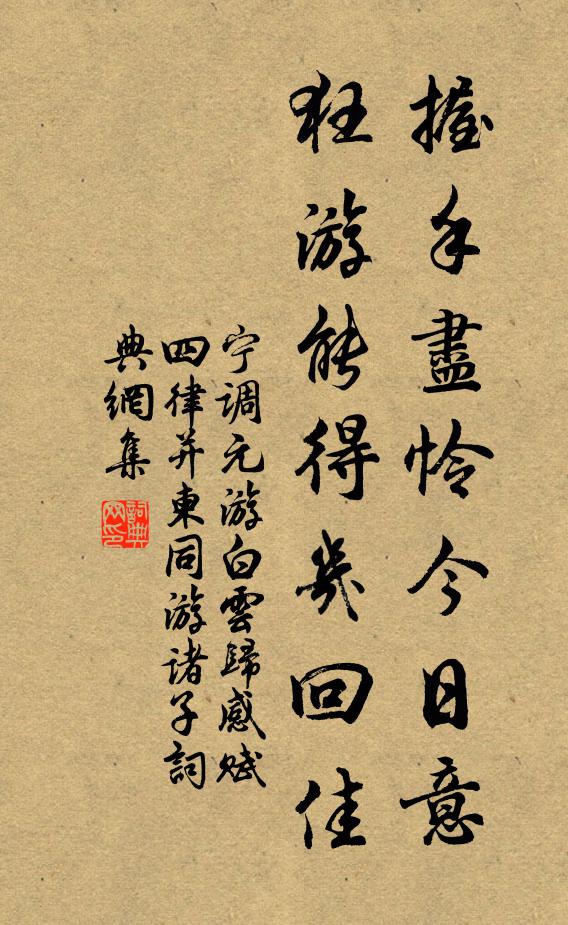 握手盡怜今日意
狂游能得幾回佳
宁调元游白雲歸感赋
四律并柬同游诸子詞
典網集
詞典網印